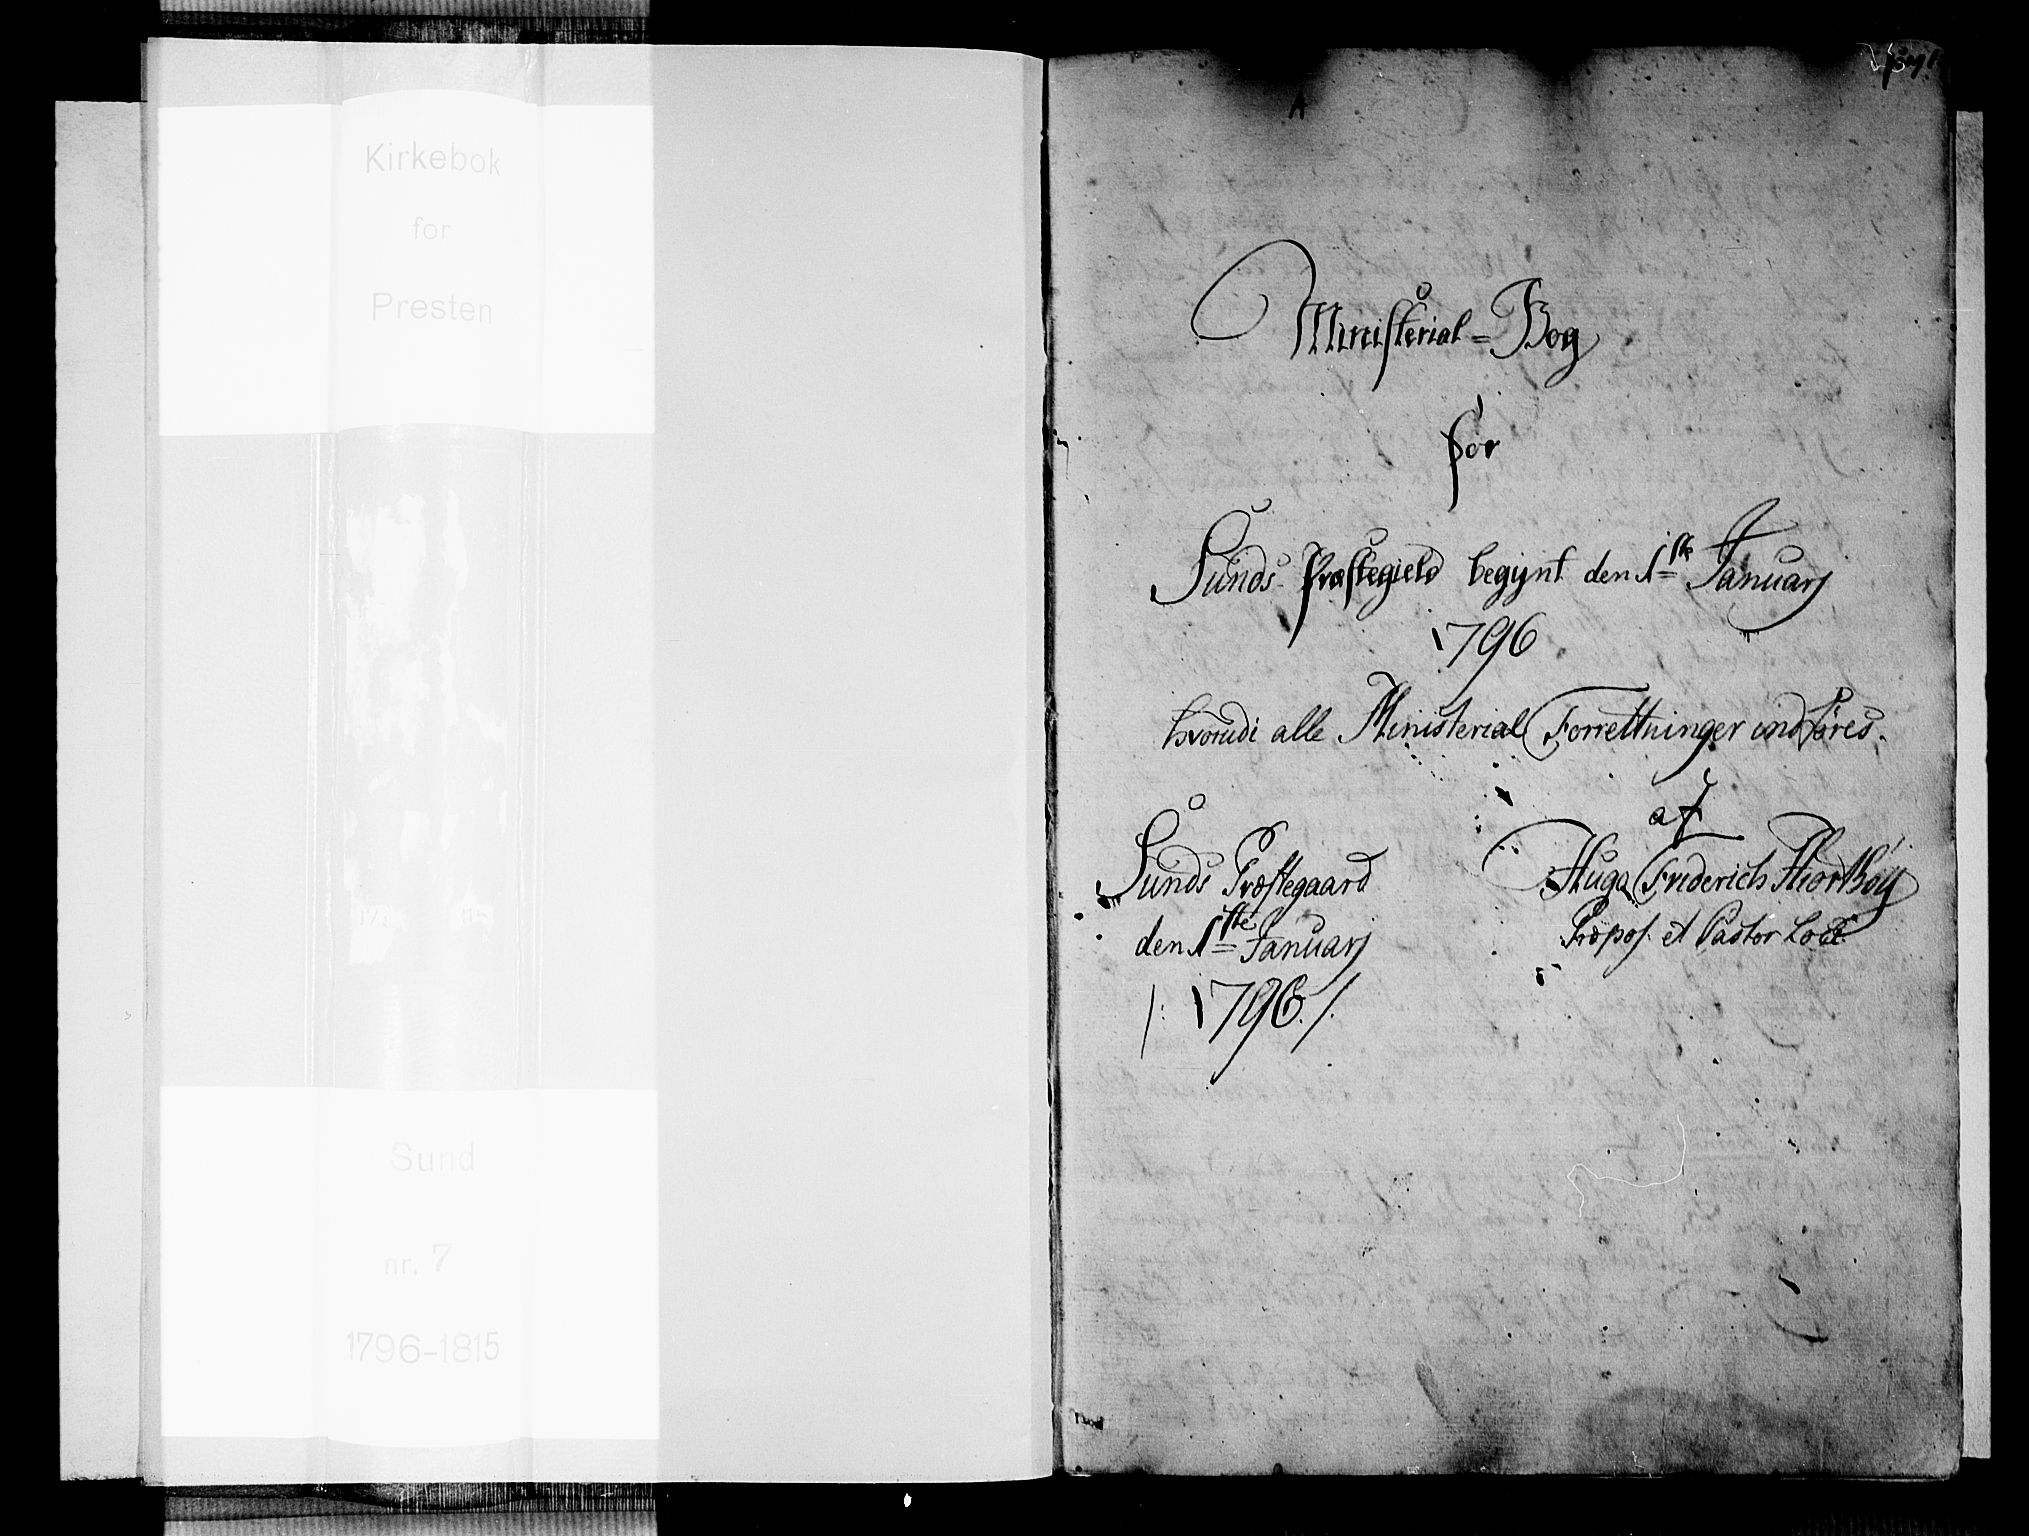 Kirkebok
for
Presten
Sund
nr. 7
1796-1815
Ministerial=Bog
for
Sunds Præstegield begynt den 1ste Januarj
1796
hvorudi alle Ministerial Forretninger indføres.
af
Sunds Præstegaard
den 1ste Januarj
/: 1796 :/
Hugo Friderich Hiorthøy
Præpos. et Pastor Loci